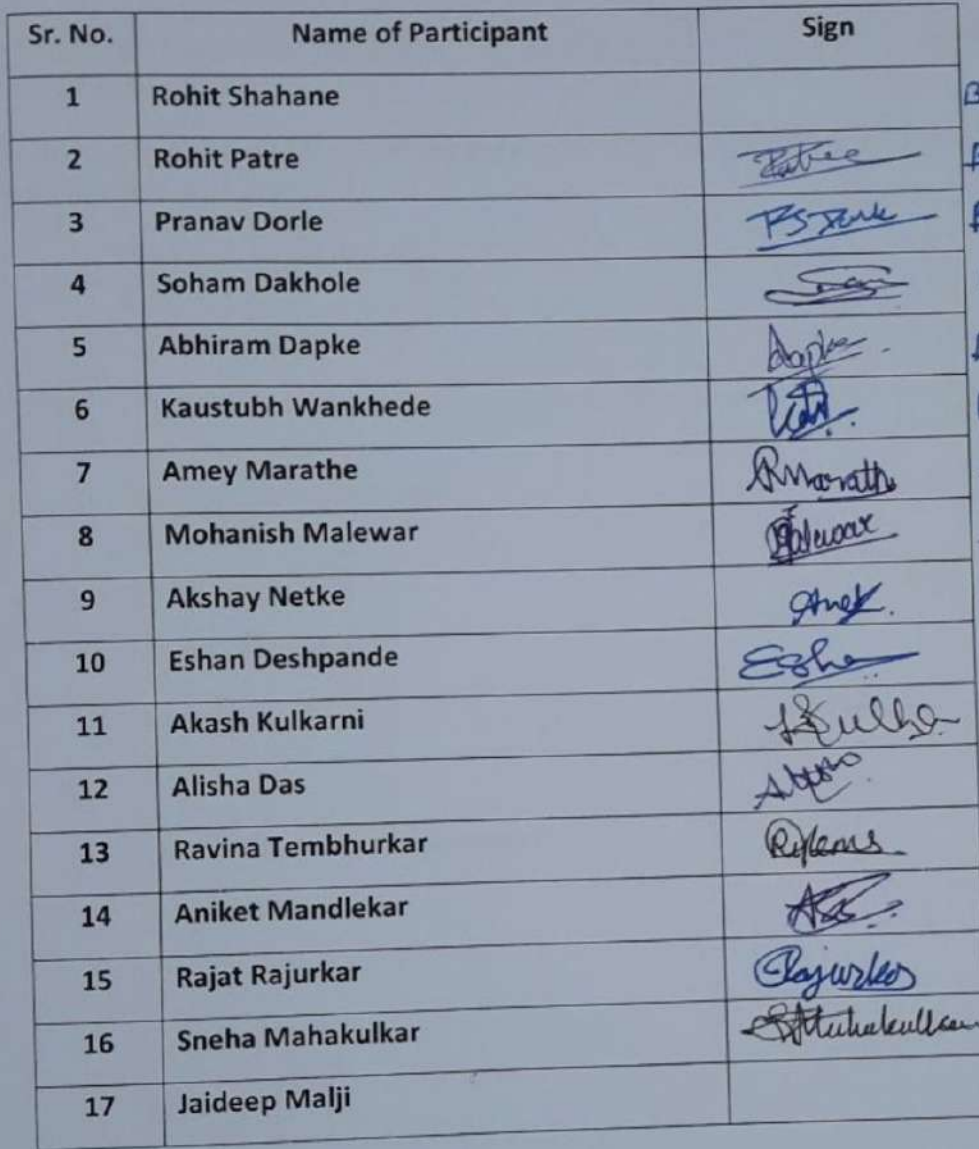 Sr. No. Name of Participant Sign
1 Rohit Shahane
2 Rohit Patre
3 Pranav Dorle
4 Soham Dakhole
5 Abhiram Dapke Dapke
6 Kaustubh Wankhede
7 Amey Marathe AMarathe
8 Mohanish Malewar Malewar
9 Akshay Netke
10 Eshan Deshpande
11 Akash Kulkarni
12 Alisha Das
13 Ravina Tembhurkar
14 Aniket Mandlekar
15 Rajat Rajurkar Rajurkar
16 Sneha Mahakulkar
17 Jaideep Malji